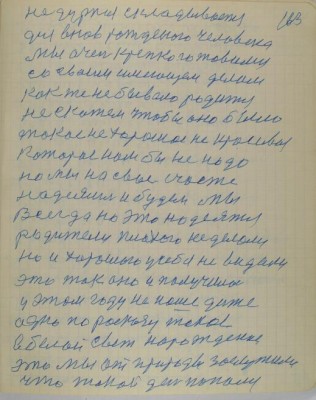 163
не дурья складывается
для вновь рожденого человека
мы очен крепко готовимы
со своим имеющем делом
как те не бывало родиту
не скажем чтобы оно было
такое не хорошое не красивое
которое нам бы не надо
но мы на свое счасте
надеялися и будем мы
всегда на это надеятся
родители плохого не делали
но и хорошого у себя не видали
это так оно и получилос
у этом году не наше даже
одно по расказу такое
в белой свет нарождение
это мы от природы заслужили
что такой день попали